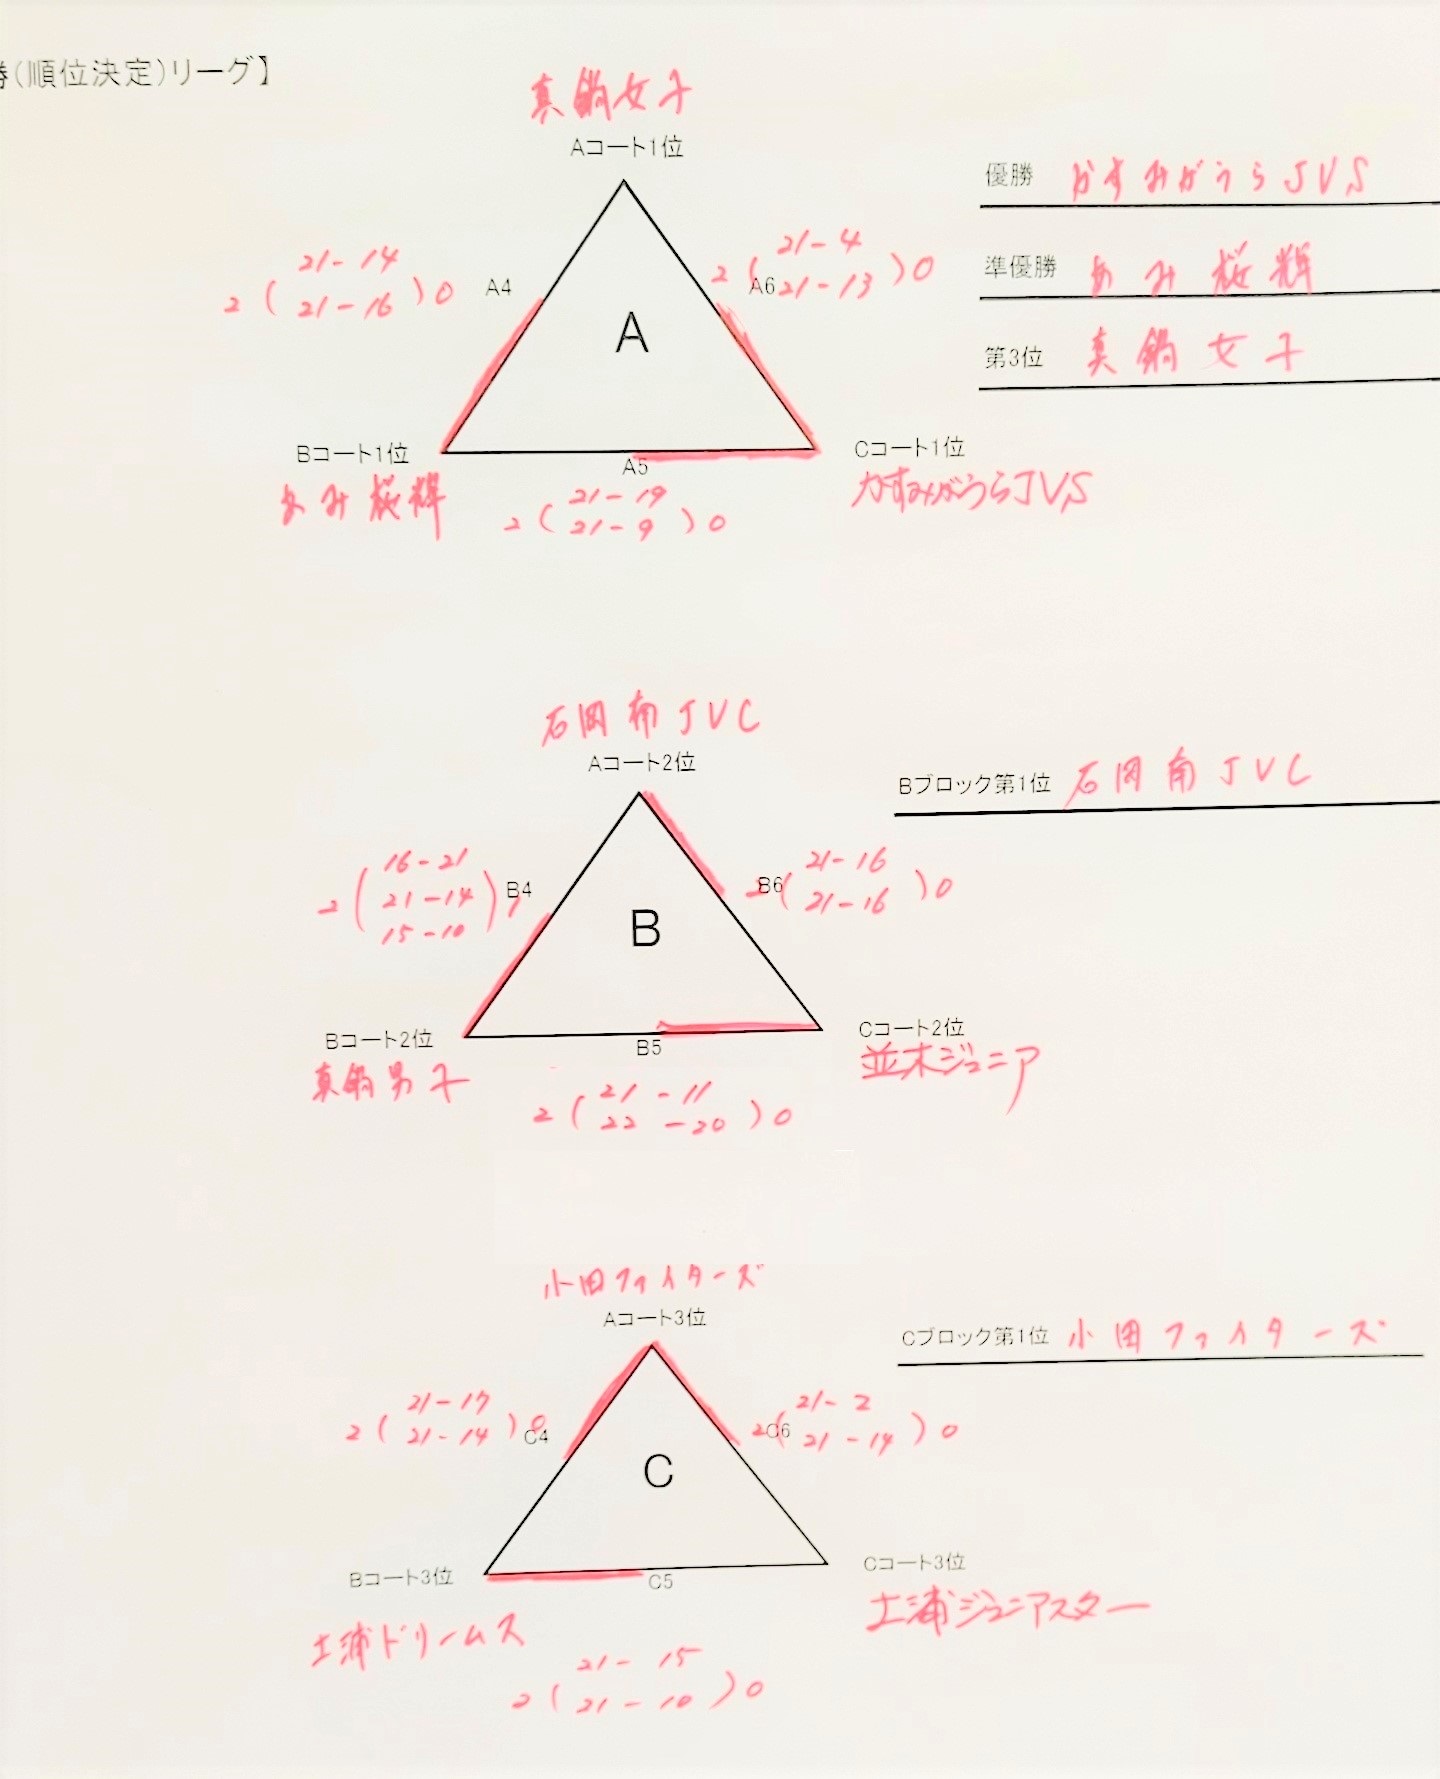 勝(順位決定)リーグ】
真鍋女子
Aコート1位
優勝 かすみがうらJVS
準優勝 あみ桜輝
第3位 真鍋女子
2(21-14 21-16)0
A4
2(21-4 21-13)0
A6
A
Bコート1位
あみ桜輝
A5
2(21-19 21-9)0
Cコート1位
かすみがうらJVS
石岡南JVC
Aコート2位
Bブロック第1位 石岡南JVC
2(16-21 21-14 15-10)1
B4
2(21-16 21-16)0
B6
B
Bコート2位
真鍋男子
B5
2(21-11 22-20)0
Cコート2位
並木ジュニア
小田ファイターズ
Aコート3位
Cブロック第1位 小田ファイターズ
2(21-17 21-14)0
C4
2(21-2 21-14)0
C6
C
Bコート3位
土浦ドリームス
C5
2(21-15 21-10)0
Cコート3位
土浦ジュニアスター